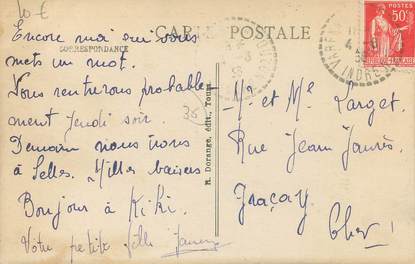 10 €
CARTE POSTALE
CORRESPONDANCE
Encore moi qui vous
mets un mot.
Nous rentrerons probable-
ment Jeudi soir.
Demain nous irons
à Selles. Milles baisers
Bonjour à Kiki.
Votre petite fille
38
R. Dorange, édit., Tours
50c
INDRE
Mr et Me Larget
Rue Jean Jaurès
Graçay
Cher